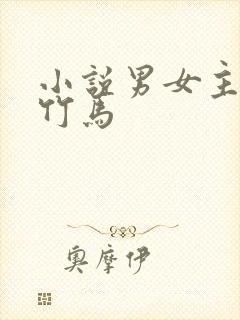 小說男女主
竹馬
奧摩伊